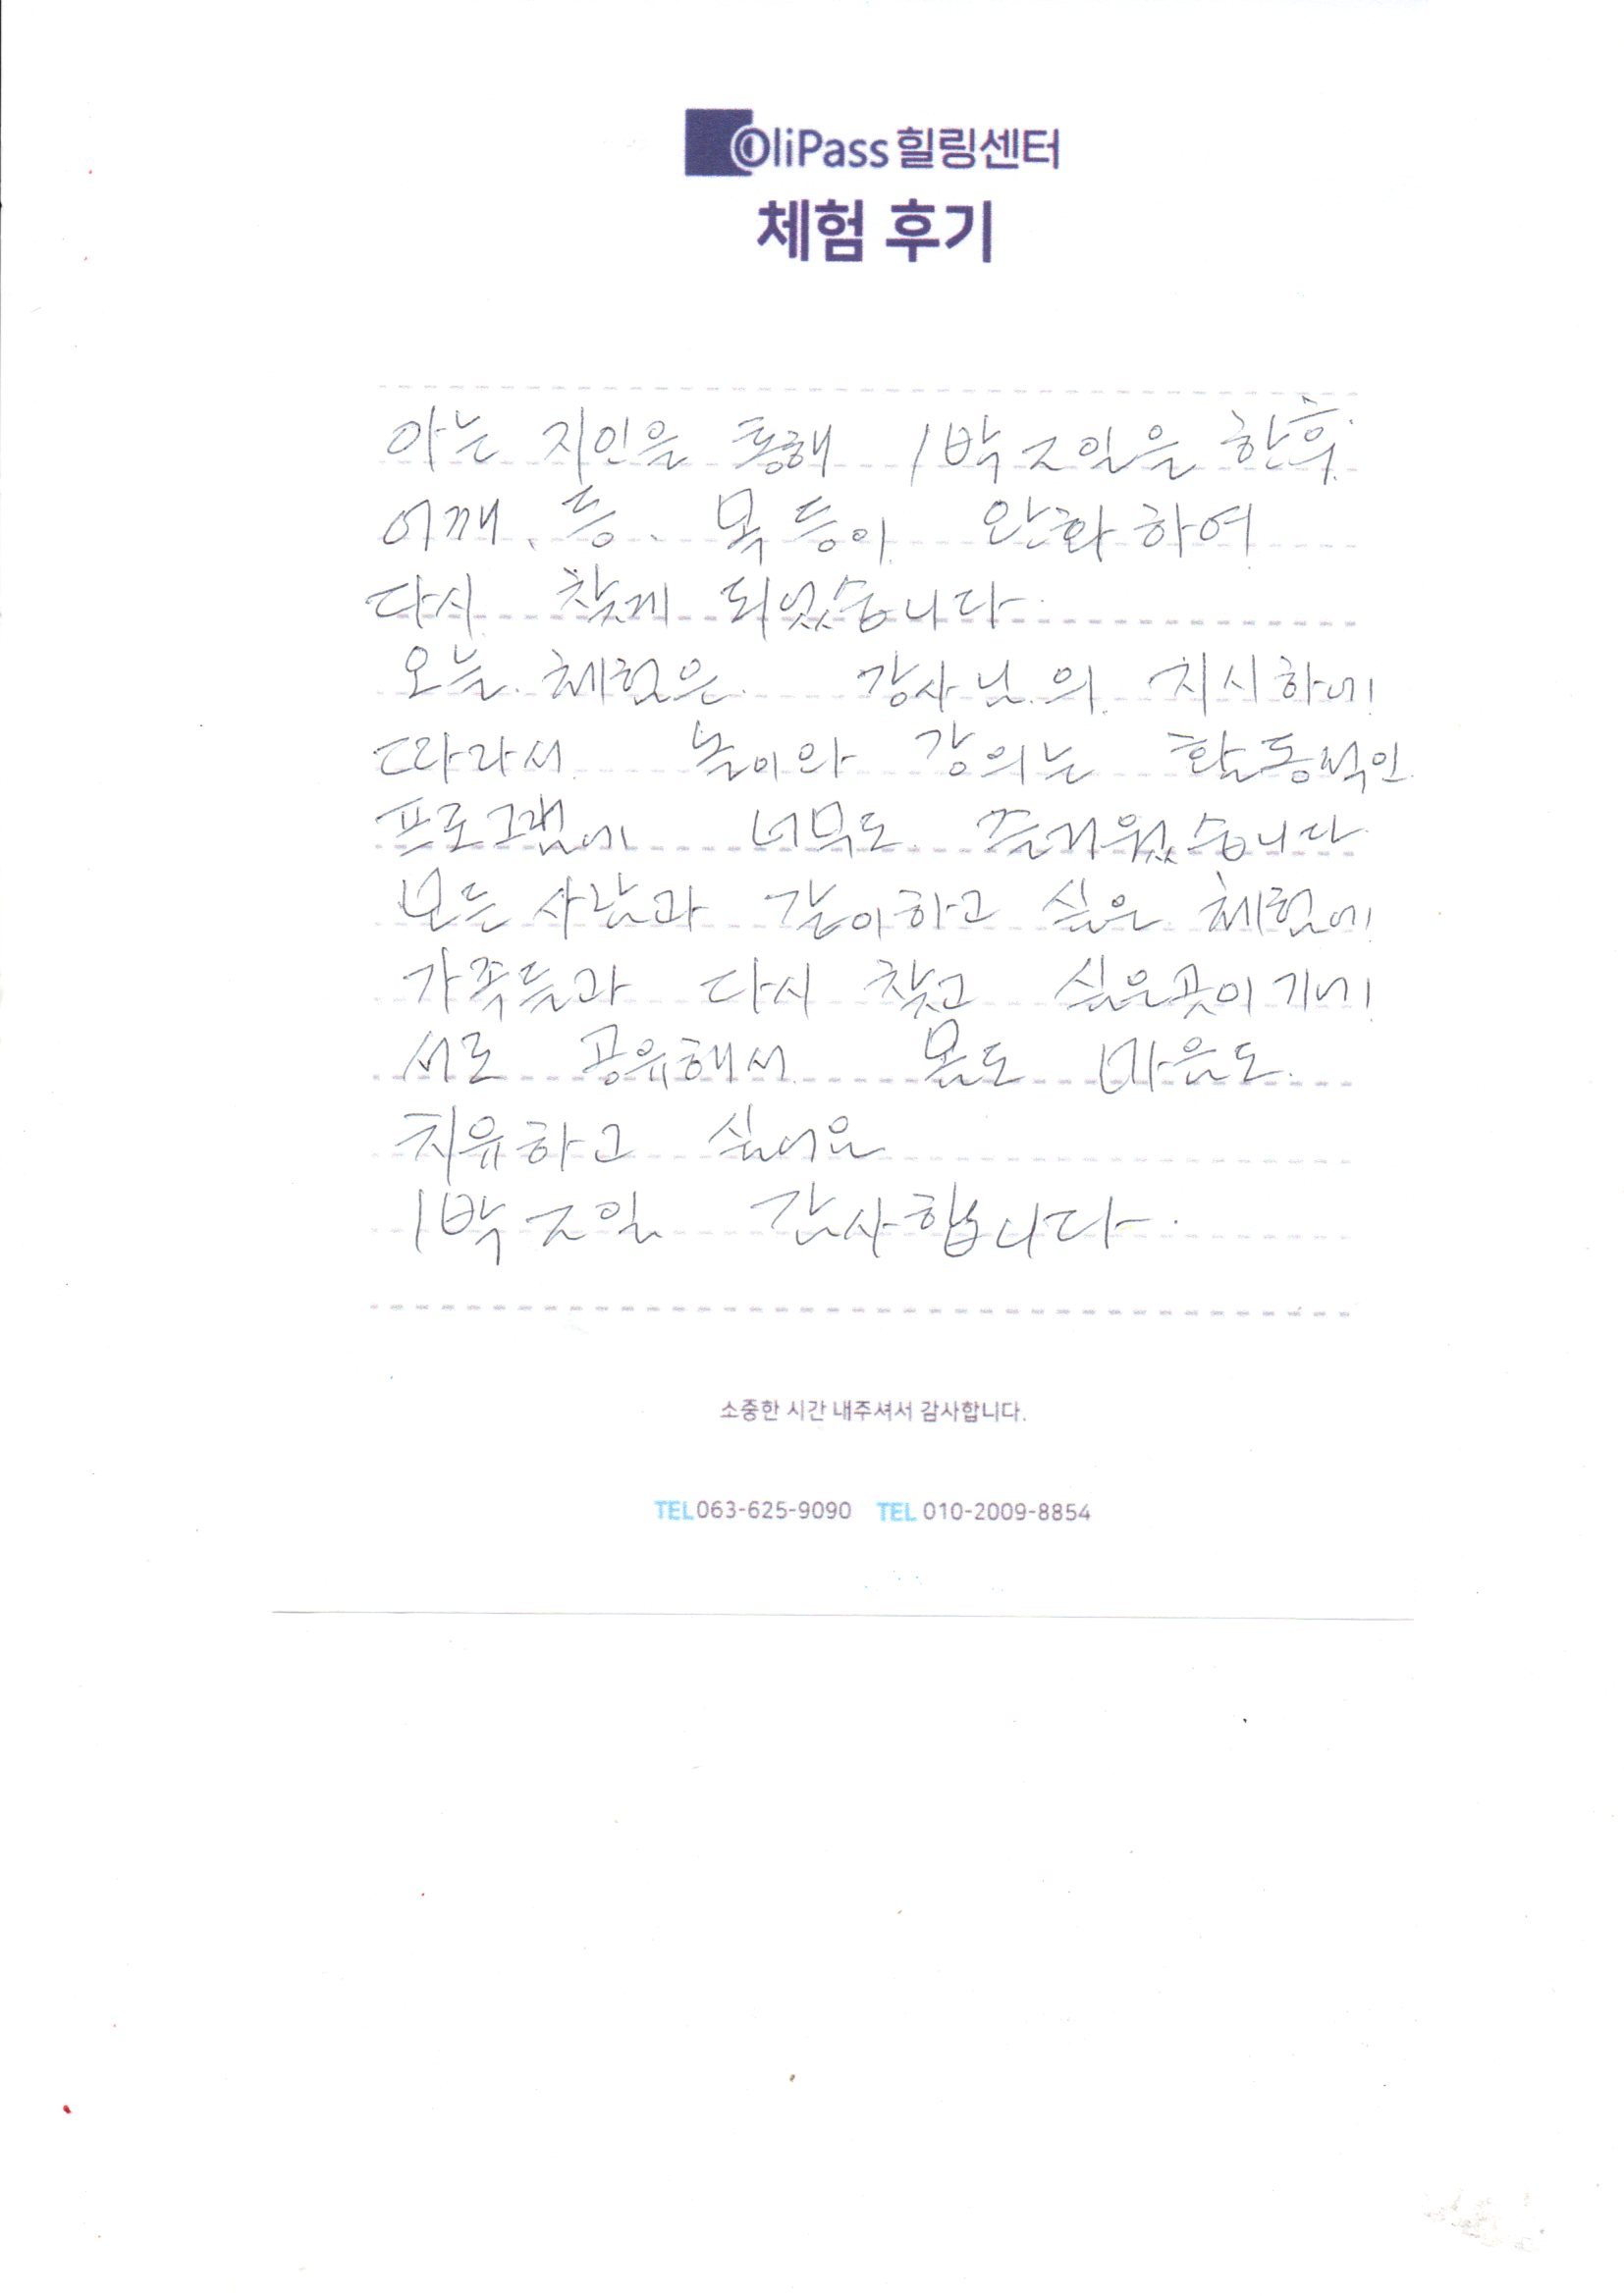 OliPass 힐링센터
체험 후기
아는 지인을 통해 1박 2일을 한후
어깨, 등, 목 등이 완화하여
다시 찾게 되었습니다.
오늘 체험은 강사님의 지시하에
따라서 놀이와 강의는 활동적인
프로그램에 너무도 즐거웠습니다
모든 사람과 같이하고 싶은 체험에
가족들과 다시 찾고 싶은곳이기에
서로 공유해서 몸도 마음도
치유하고 싶어요
1박 2일 감사합니다.
소중한 시간 내주셔서 감사합니다.
TEL 063-625-9090 TEL 010-2009-8854